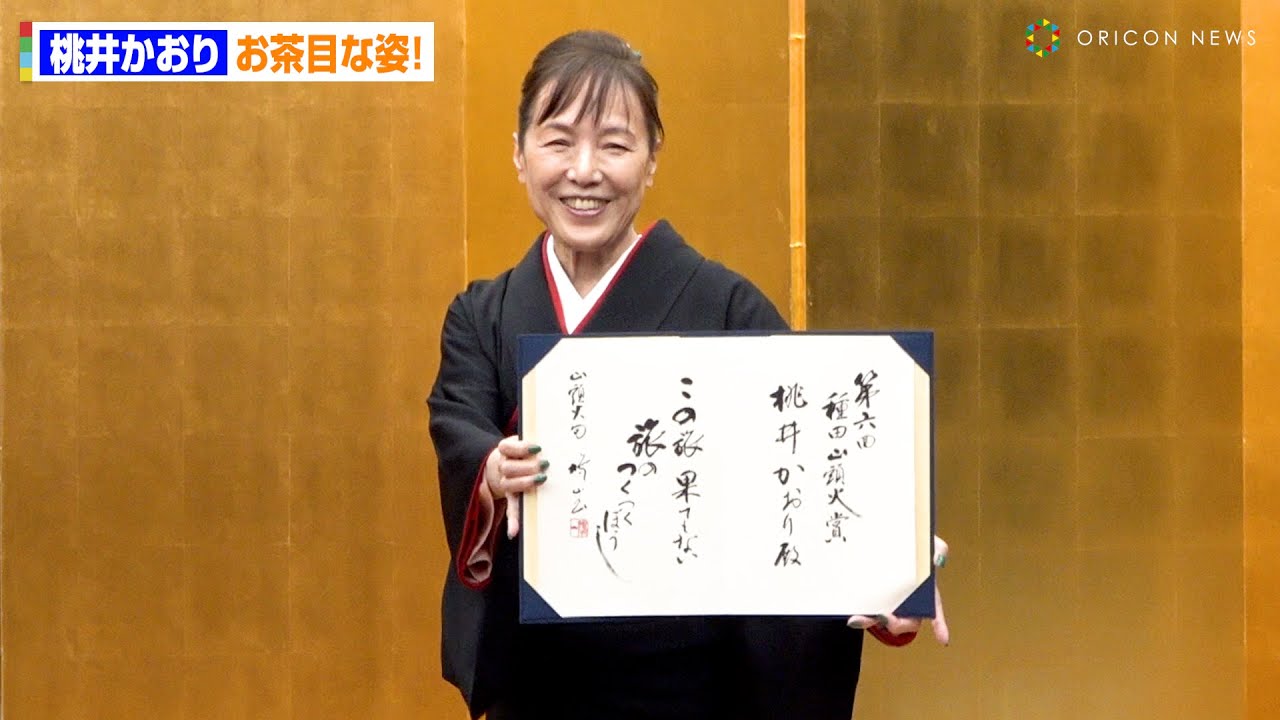 桃井かおり お茶目な姿!
ORICON NEWS
第六回
種田山頭火賞
桃井かおり殿
この旅果てもない
旅の
つくつく
ぼうし
山頭火句